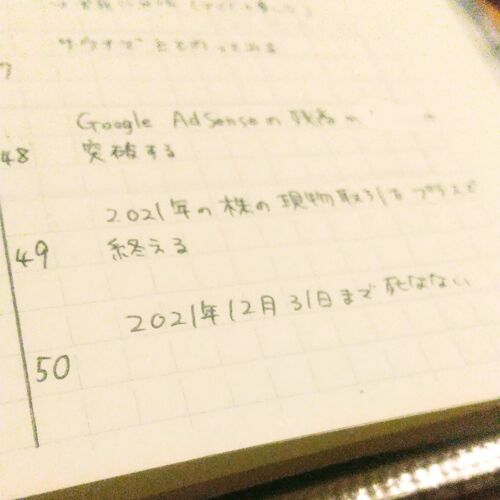 7
サウナで
Google AdSenseの残高
48 突破する
2021年の株の現物取引をプラスで
49 終える
2021年12月31日まで死なない
50